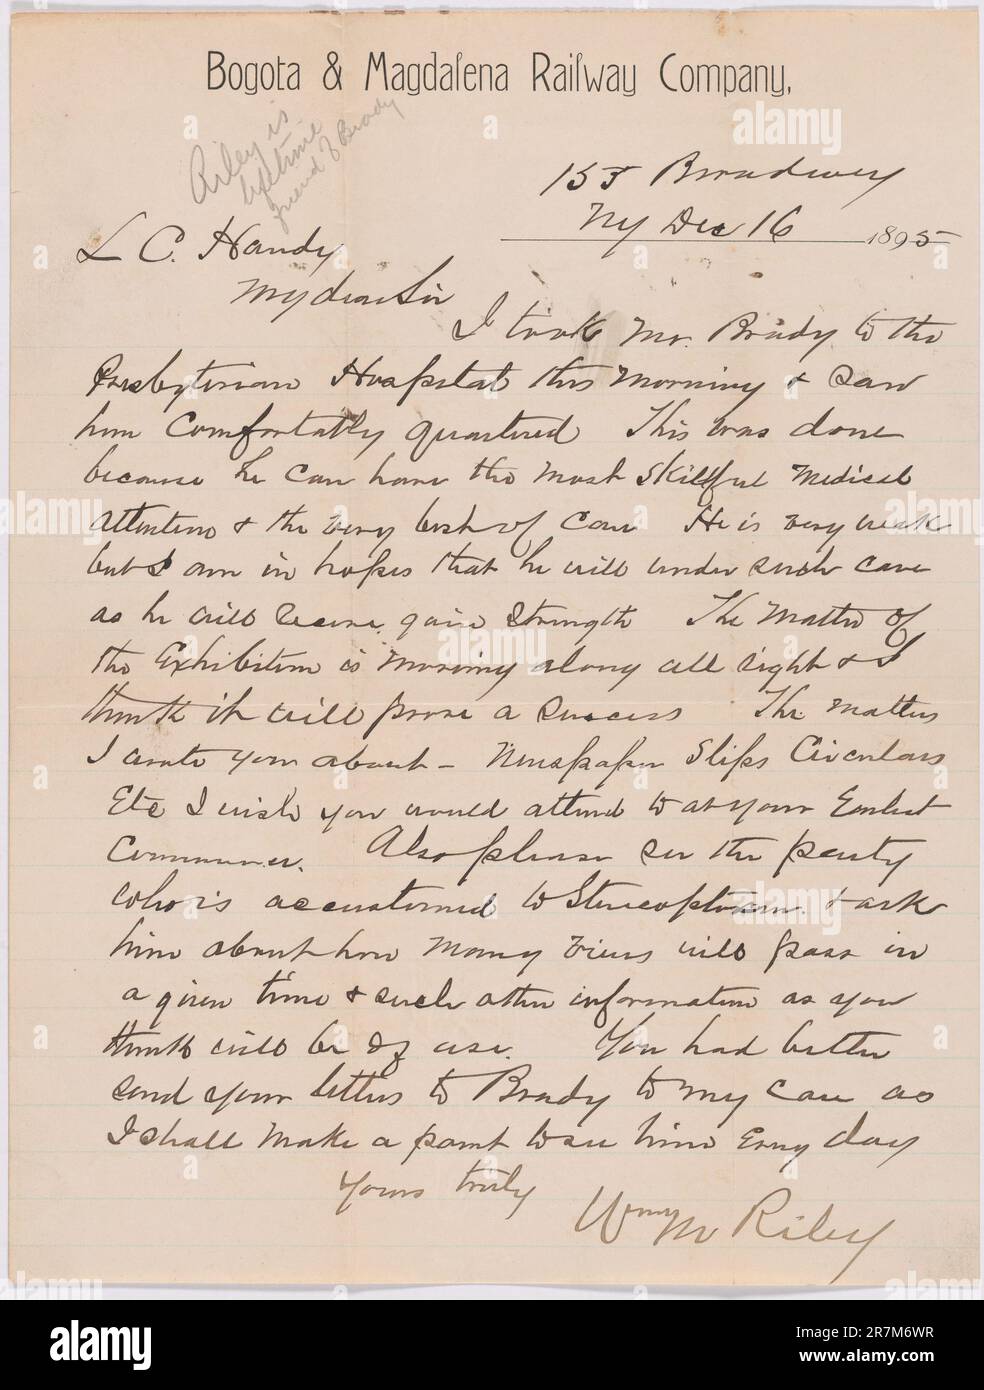 Bogota & Magdalena Railway Company,
Riley is
lifetime
friend of Brady
155 Broadway
NY Dec 16 1895
L C. Handy
My dear Sir
I took Mr. Brady to the
Presbyterian Hospital this morning & saw
him Comfortably quartered This was done
because he can have the most skillful medical
attention & the very best of care He is very weak
but I am in hopes that he will under such care
as he will receive gain strength The matter of
the Exhibition is moving along all right & I
think it will prove a success The matters
I wrote you about - Newspaper Slips Circulars
Etc I wish you would attend to at your Earliest
Also please see the party
who is accustomed to Stereopticon & ask
him about how many views will pass in
a given time & such other information as you
think will be of use. You had better
send your letters to Brady to my care as
I shall make a point to see him Every day
Yours truly
Wm M Riley
alamy
Image ID: 2R7M6WR
www.alamy.com